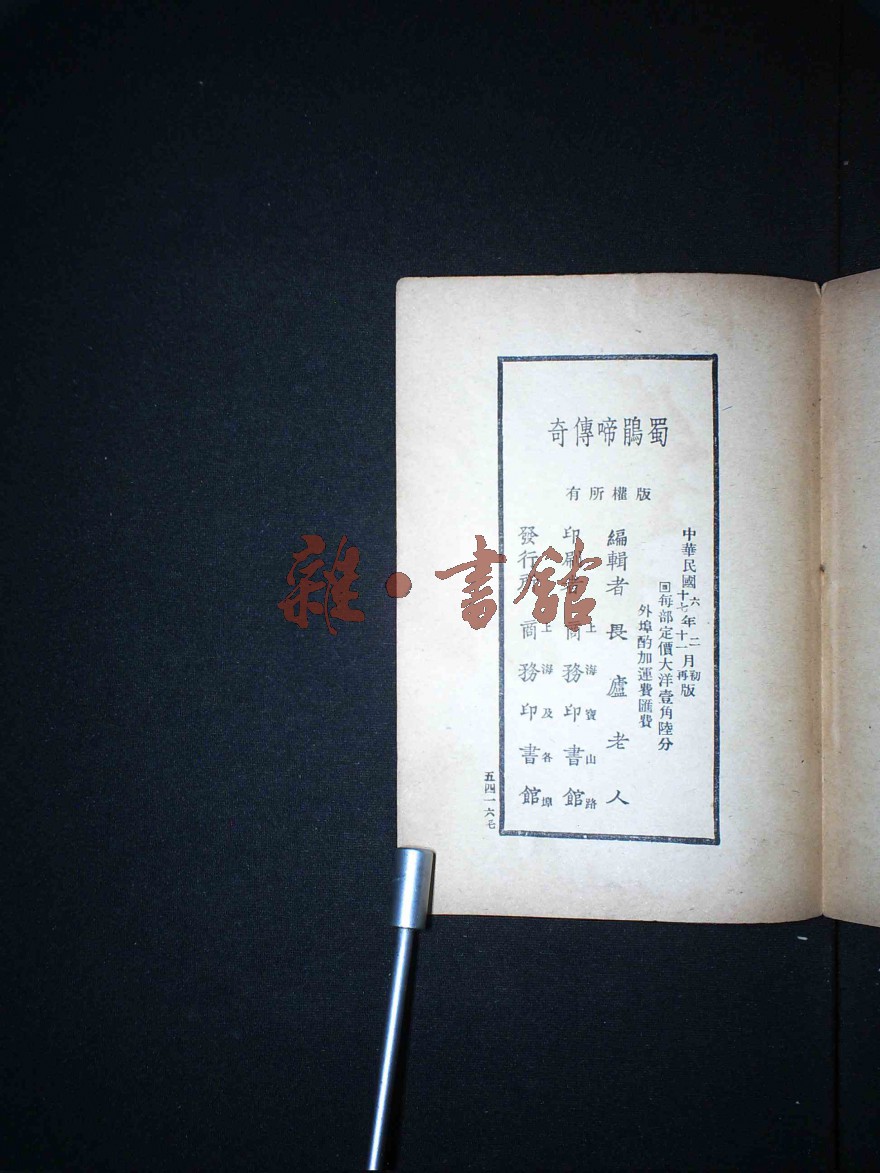 蜀鵑啼傳奇
版權所有
中華民國
六年二月初版
十七年十一月再版
回每部定價大洋壹角陸分
外埠酌加運費匯費
編輯者 畏廬老人
印刷者 上海寶山路 商務印書館
發行所 上海及各埠 商務印書館
五四一六七
雜·書館